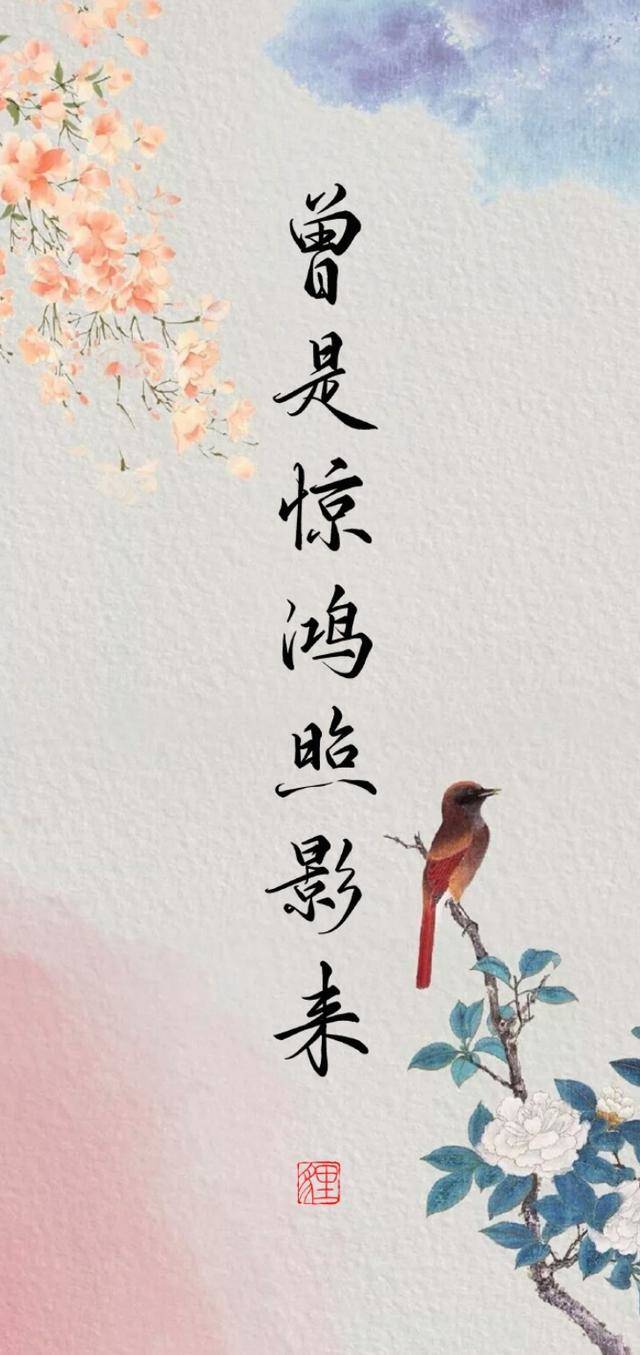 曾是惊鸿照影来
狸